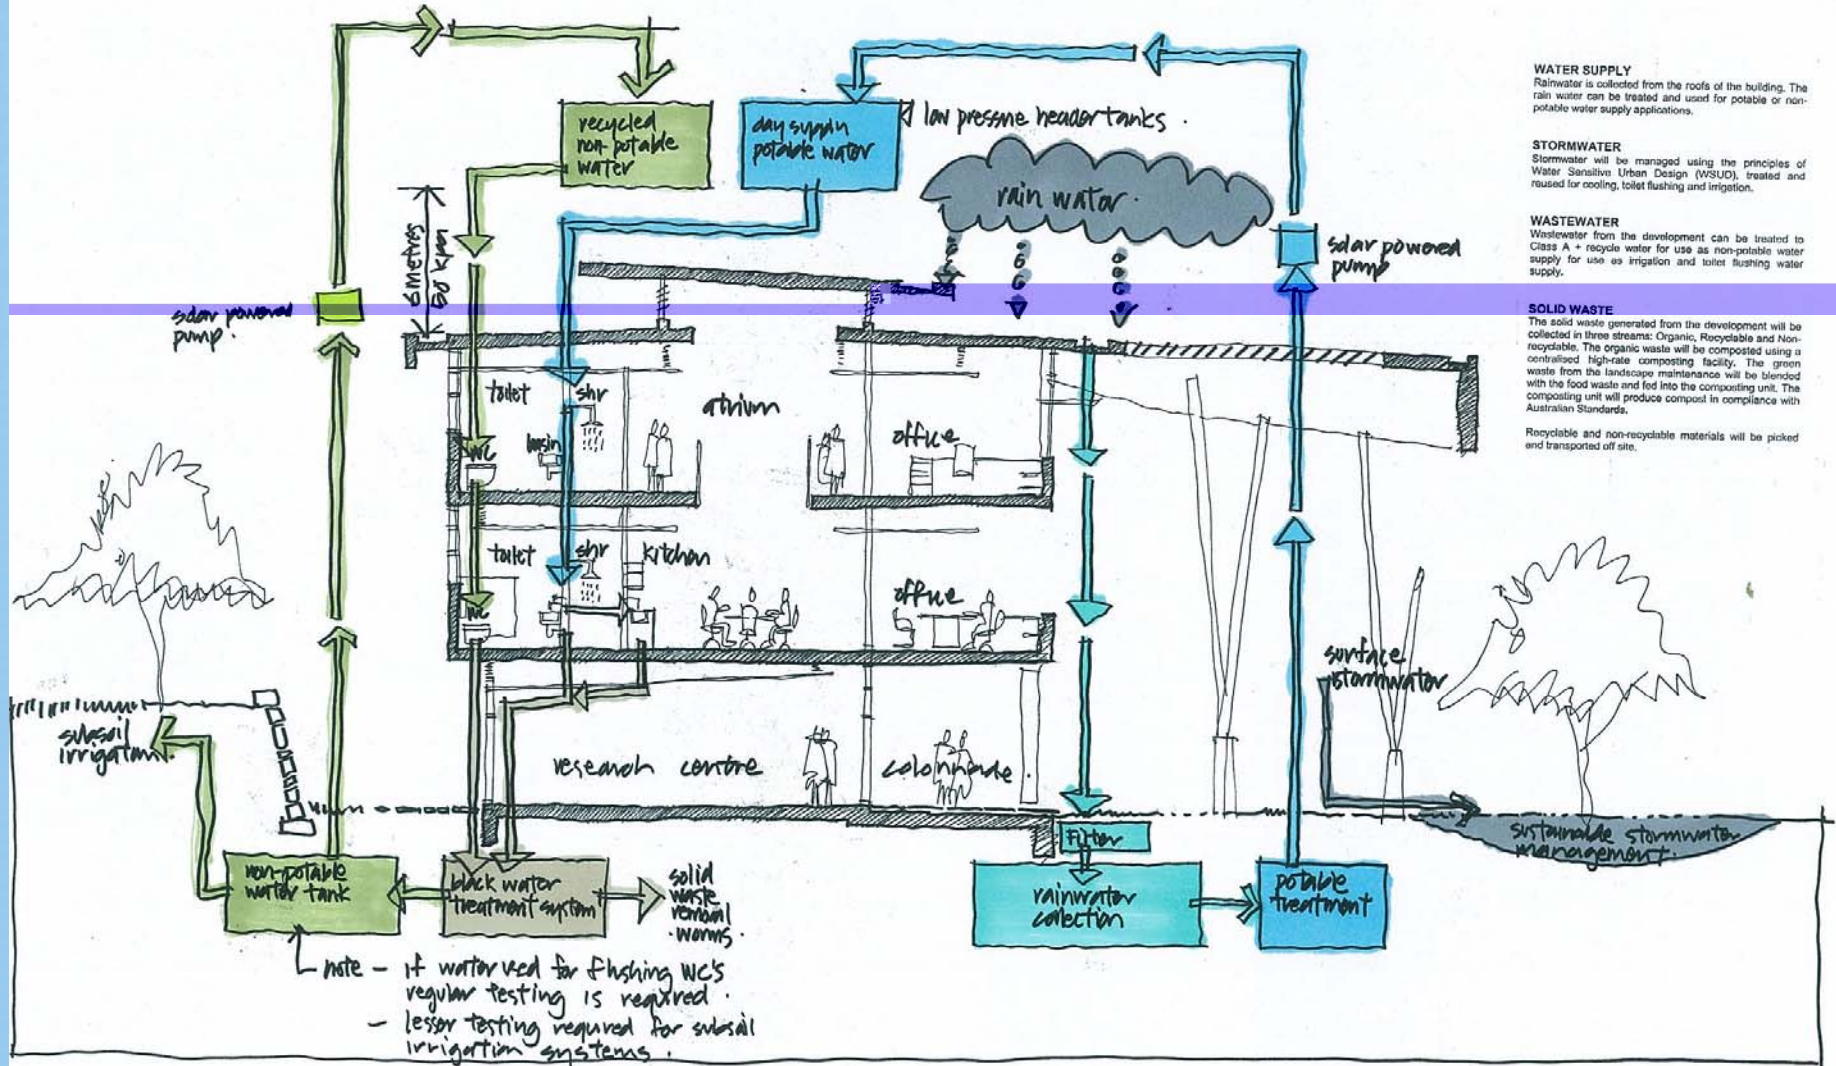 recycled
non-potable
water
day supply
potable water
low pressure header tanks.
rain water.
6 metres
60 kpa
solar powered
pump.
solar powered
pump
toilet
shr
atrium
office
WC
basin
toilet
shr
kitchen
office
WC
surface
stormwater
subsoil
irrigation.
research centre
colonnade.
Filter
sustainable stormwater
management.
non-potable
water tank
black water
treatment system
solid
waste
removal
.worms.
rainwater
collection
potable
treatment
note - if water used for flushing WC's
regular testing is required.
- lesser testing required for subsoil
irrigation systems.
WATER SUPPLY
Rainwater is collected from the roofs of the building. The
rain water can be treated and used for potable or non-
potable water supply applications.
STORMWATER
Stormwater will be managed using the principles of
Water Sensitive Urban Design (WSUD), treated and
reused for cooling, toilet flushing and irrigation.
WASTEWATER
Wastewater from the development can be treated to
Class A + recycle water for use as non-potable water
supply for use as irrigation and toilet flushing water
supply.
SOLID WASTE
The solid waste generated from the development will be
collected in three streams: Organic, Recyclable and Non-
recyclable. The organic waste will be composted using a
centralised high-rate composting facility. The green
waste from the landscape maintenance will be blended
with the food waste and fed into the composting unit. The
composting unit will produce compost in compliance with
Australian Standards.
Recyclable and non-recyclable materials will be picked
and transported off site.